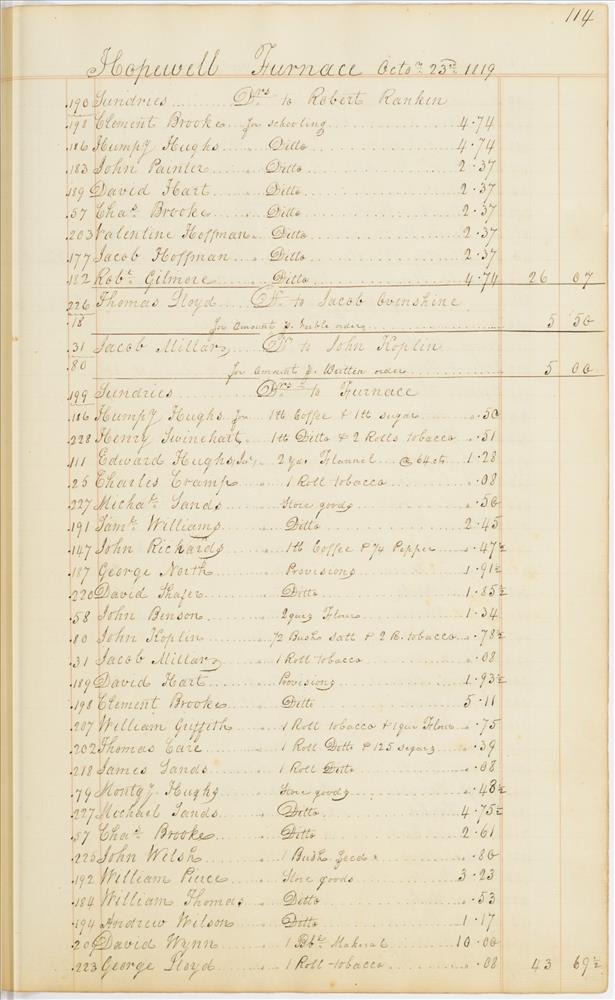 114
Hopewell Furnace Octor. 23rd. 1819
190 Sundries Drs. to Robert Rankin
198 Clement Brooke for schooling 4.74
186 Humpy Hughs Ditto 4.74
183 John Painter Ditto 2.37
189 David Hart Ditto 2.37
57 Chas. Brooke Ditto 2.37
203 Valentine Hoffman Ditto 2.37
177 Jacob Hoffman Ditto 2.37
182 Robt. Gilmore Ditto 4.74 26 07
226 Thomas Lloyd Dr. to Jacob Ovinshine
18 for amount p. Verble order 5 50
31 Jacob Millar Dr to John Koplin
80 for amount p. Written order 5 00
199 Sundries Drs. to Furnace
186 Humpy Hughs for 1 lb Coffee & 1 lb sugar .50
228 Henry Swinehart 1 lb Ditto & 2 Rolls tobacco .51
111 Edward Hughs Jr. 2 yds. Flannel @ 64 cts 1.28
25 Charles Cramp 1 Roll tobacco .08
227 Michal. Sands Store goods .50
191 Saml. Williams Ditto 2.45
147 John Richards 1 lb Coffee & 1/4 Pepper .47½
187 George North Provisions 1.91½
220 David Shafer Ditto 1.85½
58 John Benson 2 qurs Flour 1.34
80 John Koplin 1/2 Bush. Salt & 2 R. tobacco .78½
31 Jacob Millar 1 Roll tobacco .08
189 David Hart Provisions 1.93½
198 Clement Brooke Ditto 5.11
207 William Griffith 1 Roll tobacco & 1 qur Flour .75
202 Thomas Care 1 Roll Ditto & 125 segars .39
218 James Sands 1 Roll Ditto .08
79 Montgy. Hughs Store goods .48½
227 Michael Sands Ditto 4.75½
57 Chas. Brooke Ditto 2.61
225 John Welsh 1 Bush. feed .80
192 William Pierce Store goods 3.23
184 William Thomas Ditto .53
194 Andrew Wilson Ditto 1.17
209 David Wynn 1 Bbl. Makeral 10.00
223 George Lloyd 1 Roll tobacco .08 43 69½